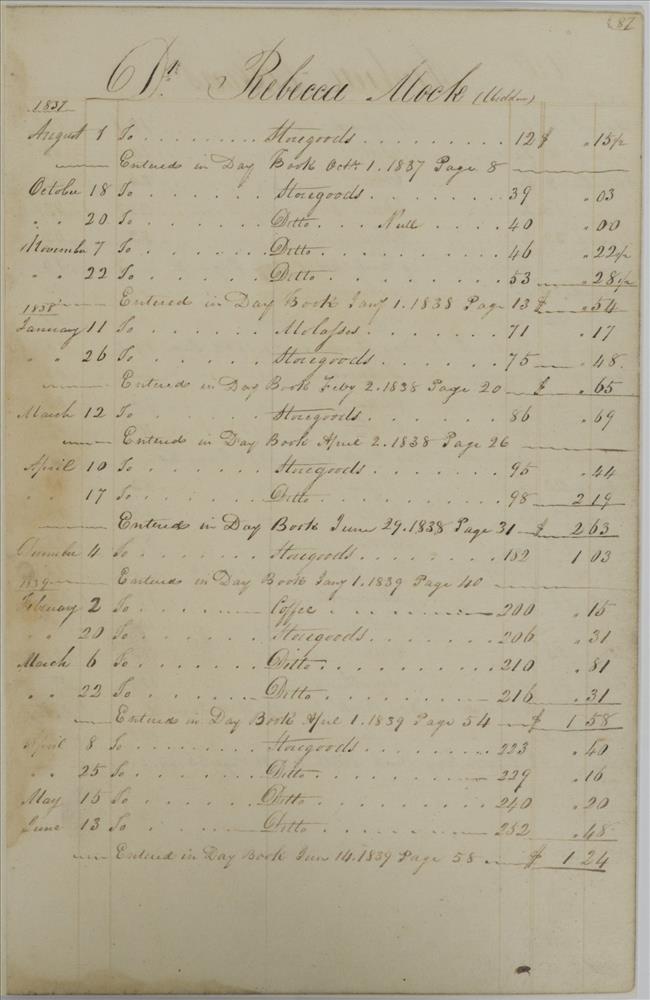 87
Dr. Rebecca Mock (Widdow)
1837
August 1 To . . . . . . . . . Storegoods . . . . . . . . . 12 $ . 15 1/2
Entered in Day Book Octr. 1. 1837 Page 8
October 18 To . . . . . . Storegoods . . . . . . . 39 . 03
" " 20 To . . . . . . Ditto . . . Null . . . . 40 . 00
November 7 To . . . . . . Ditto . . . . . . . . . 46 . 22 1/2
" " 22 To . . . . . . Ditto . . . . . . . . . 53 . 28 1/2
Entered in Day Book Jany 1. 1838 Page 13 $ . 54
1838
January 11 To . . . . . . Molasses . . . . . . . 71 . 17
" " 26 To . . . . . . Storegoods . . . . . . 75 . 48
Entered in Day Book Feby 2. 1838 Page 20 $ . 65
March 12 To . . . . . . Storegoods . . . . . . 86 . 69
Entered in Day Book April 2. 1838 Page 26
April 10 To . . . . . . Storegoods . . . . . . 95 . 44
" " 17 To . . . . . . Ditto . . . . . . . . . 98 2 19
Entered in Day Book June 29. 1838 Page 31 $ 2 63
December 4 To . . . . . . Storegoods . . . . . . 182 1 03
1839
Entered in Day Book Jany 1. 1839 Page 40
February 2 To . . . . . . Coffee . . . . . . 200 . 15
" " 20 To . . . . . . Storegoods . . . . . . 206 . 31
March 6 To . . . . . . Ditto . . . . . . . . . 210 . 81
" " 22 To . . . . . . Ditto . . . . . . . . . 216 . 31
Entered in Day Book Aprl 1. 1839 Page 54 $ 1 58
April 8 To . . . . . . Storegoods . . . . . . 223 . 40
" " 25 To . . . . . . Ditto . . . . . . . . . 229 . 16
May 15 To . . . . . . Ditto . . . . . . . . . 240 . 20
June 13 To . . . . . . Ditto . . . . . . . . . 252 . 48
Entered in Day Book Jun 14. 1839 Page 58 $ 1 24